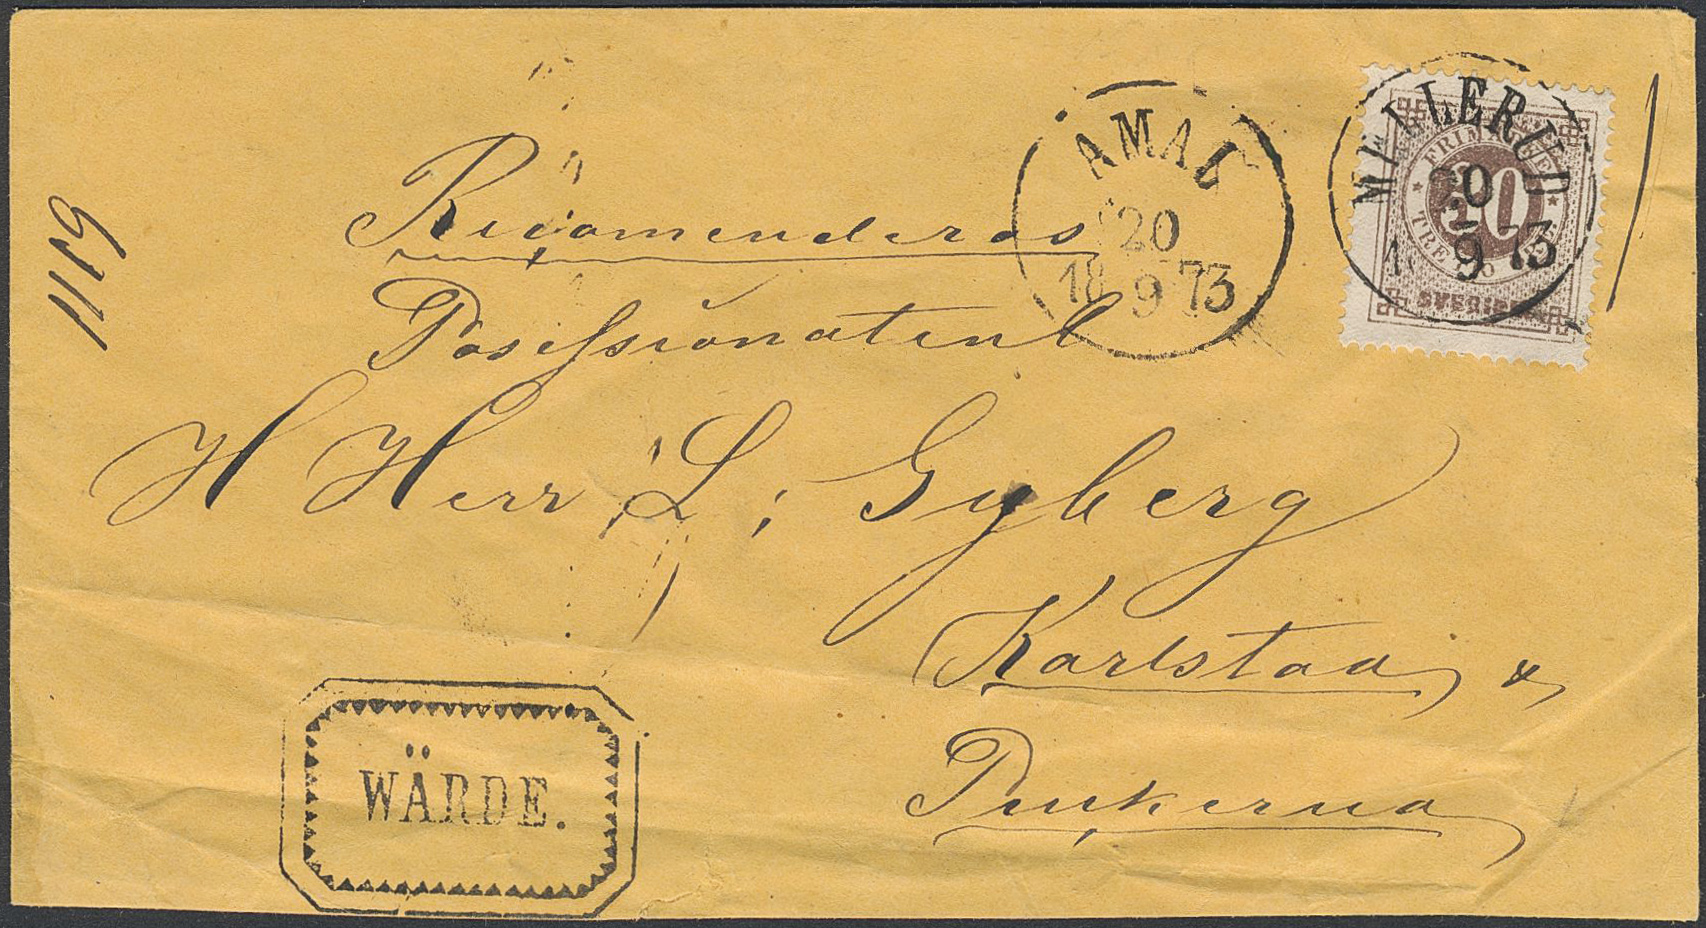 1119
Recomenderas
Possessionaten
H Herr L; Gyberg
Karlstad &
Pukerud
ÅMÅL
20
18 9 73
MELLERUD
20
18 9 73
FRIMÆRKE
30
TRETIO ÖRE
SVERIGE
WÄRDE.